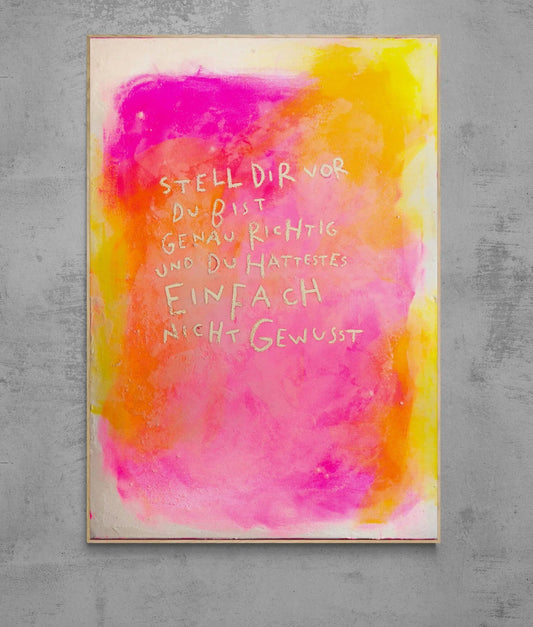 STELL DIR VOR
DU BIST
GENAU RICHTIG
UND DU HATTESTES
EINFACH
NICHT GEWUSST